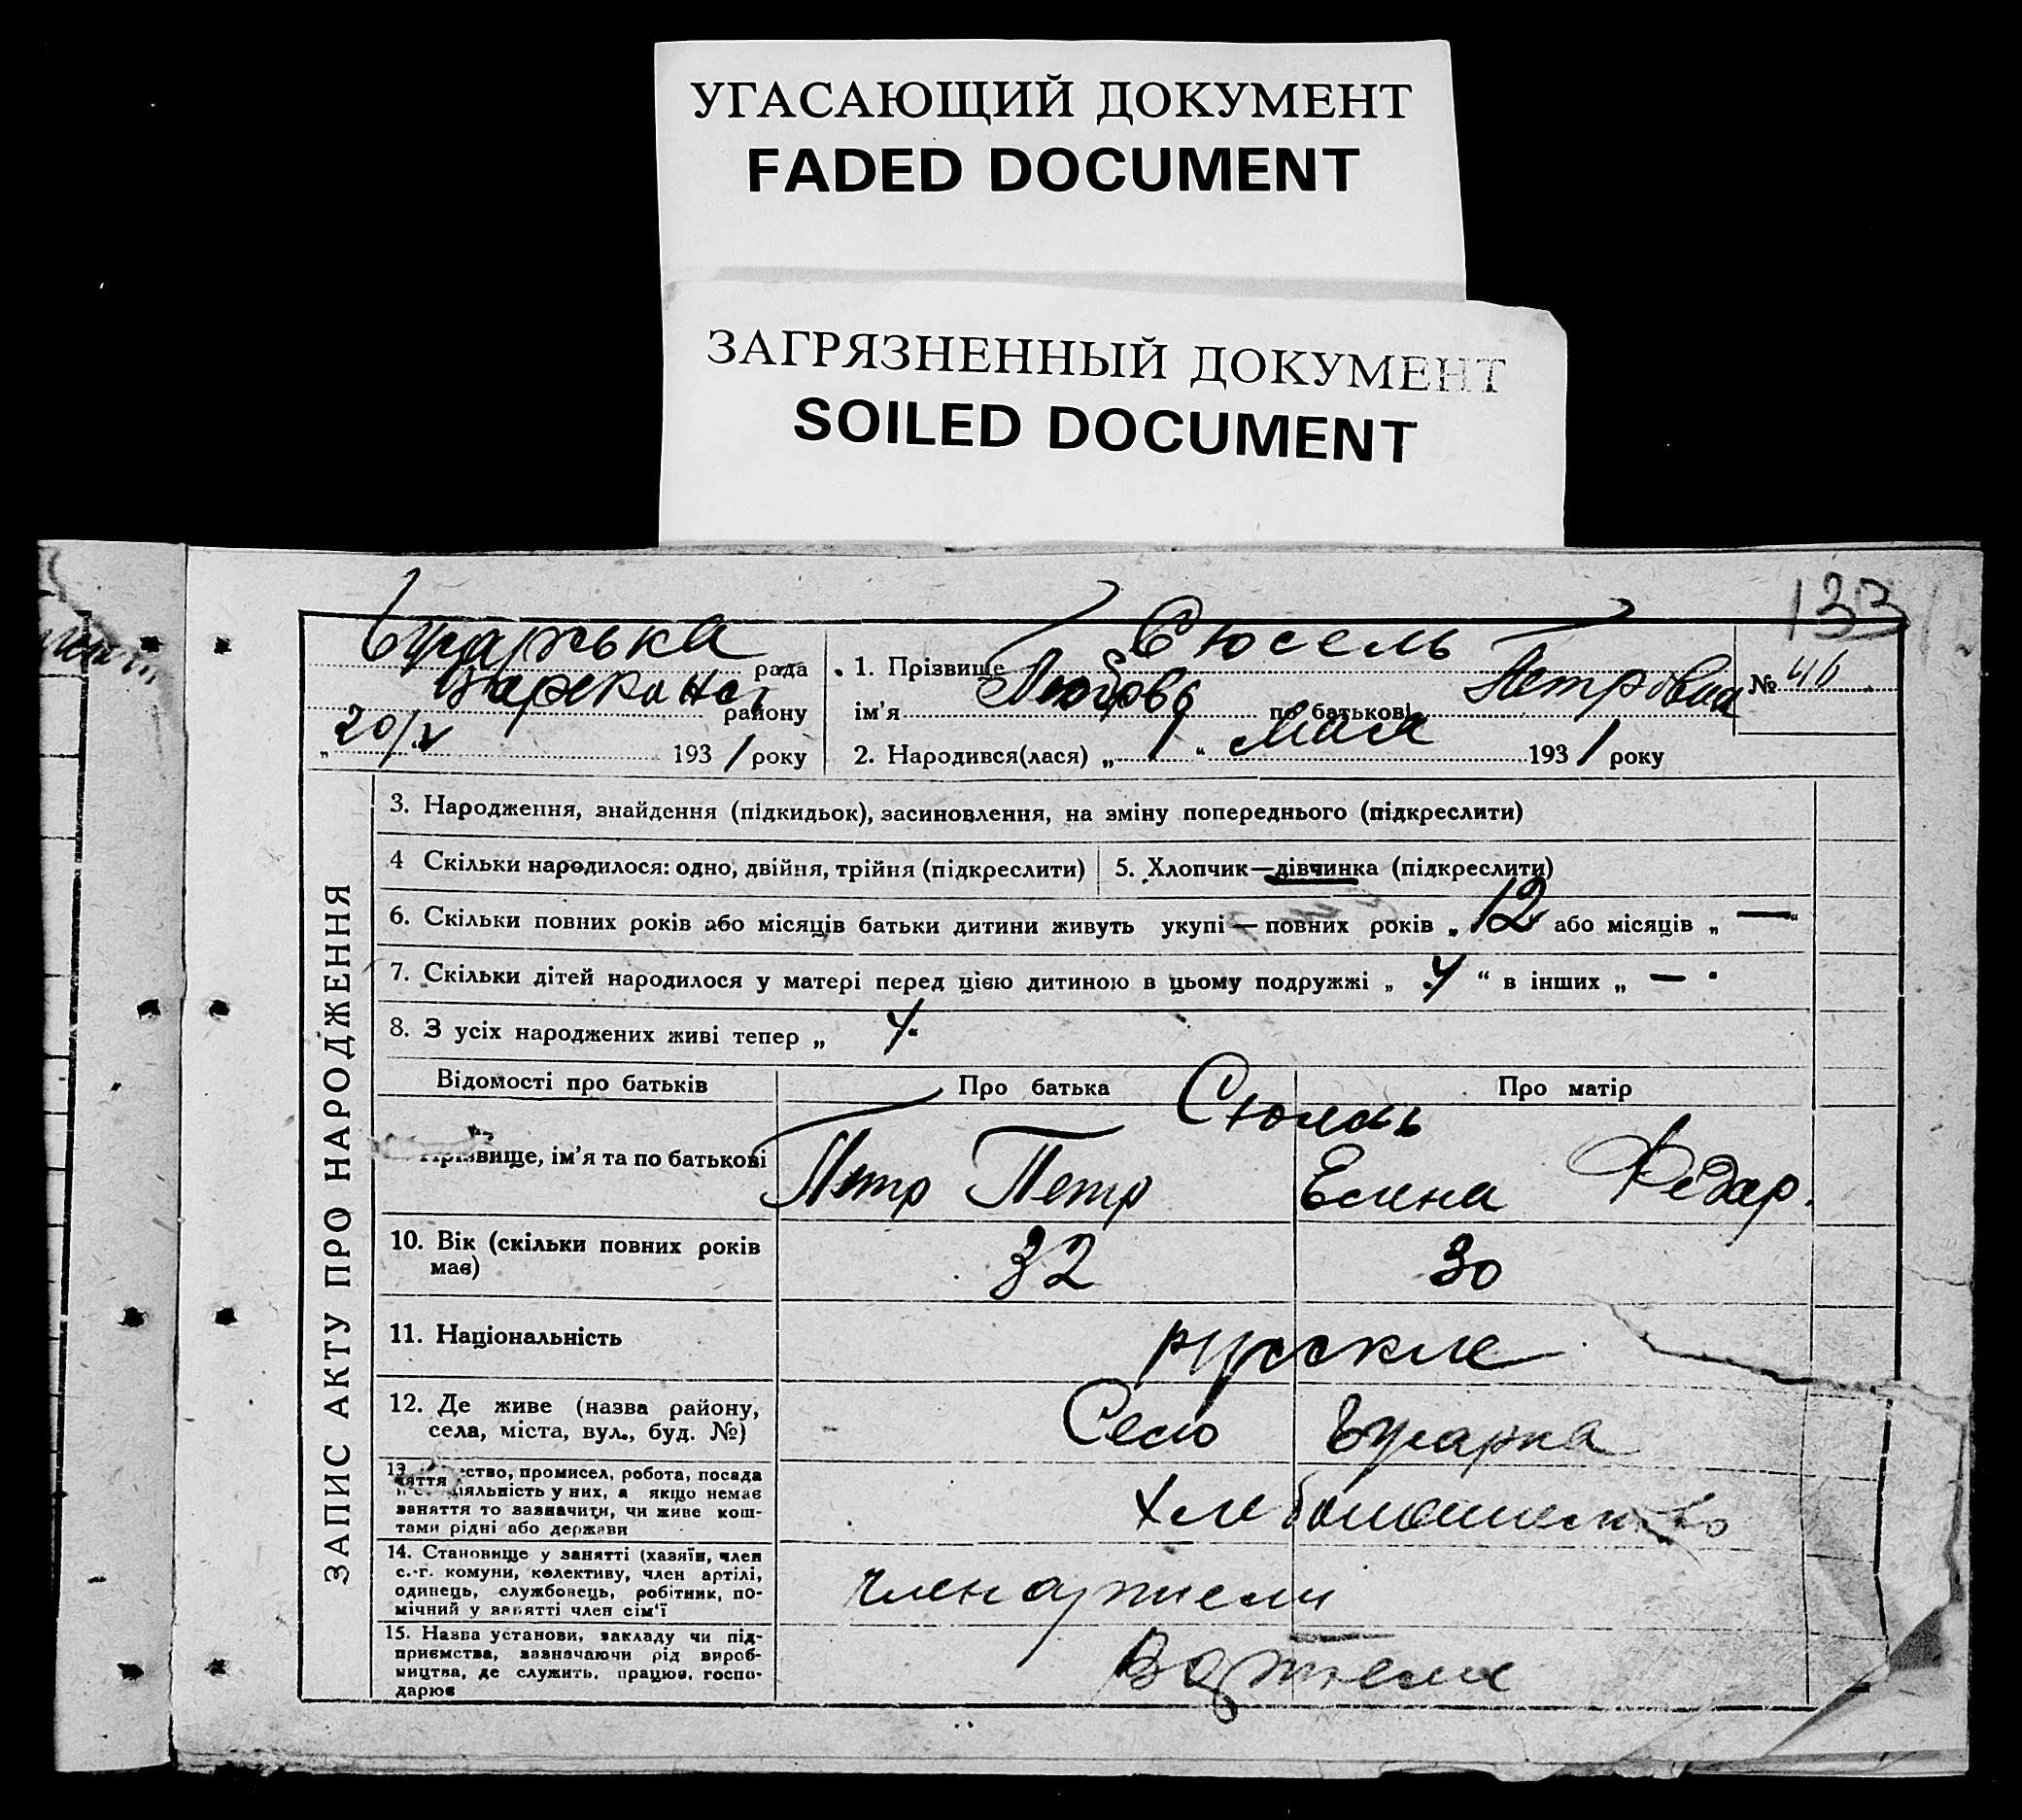 УГАСАЮЩИЙ ДОКУМЕНТ
FADED DOCUMENT
ЗАГРЯЗНЕННЫЙ ДОКУМЕНТ
SOILED DOCUMENT
133
рада
району
„20/V 1931 року
1. Прізвище Сюсель
ім'я Любовь по батькові Петровна
№ 46
2. Народився(лася) „1“ мая 1931 року
ЗАПИС АКТУ ПРО НАРОДЖЕННЯ
3. Народження, знайдення (підкидьок), засиновлення, на зміну попереднього (підкреслити)
4 Скільки народилося: одно, двійня, трійня (підкреслити)
5. Хлопчик—дівчинка (підкреслити)
6. Скільки повних років або місяців батьки дитини живуть укупі — повних років „ 12 або місяців „ —“
7. Скільки дітей народилося у матері перед цією дитиною в цьому подружжі „ 4 “ в інших „ —
8. З усіх народжених живі тепер „ 4.
Відомості про батьків
Про батька
Про матір
Прізвище, ім'я та по батькові
Петр Петр
Елена Федар.
10. Вік (скільки повних років
має)
32
30
11. Національність
русские
12. Де живе (назва району,
села, міста, вул., буд. №)
Село
13.
няття ство, промисел, робота, посада
яльність у них, а якщо немає
заняття то зазначити, чи живе кош-
тами рідні або держави
14. Становище у занятті (хазяїн, член
с.-г. комуни, колективу, член артілі,
одинець, службовець, робітник, по-
мічний у занятті член сім'ї
член артели
15. Назва установи, закладу чи під-
приємства, зазначаючи рід вироб-
ництва, де служить, працює, госпо-
дарює
В артели